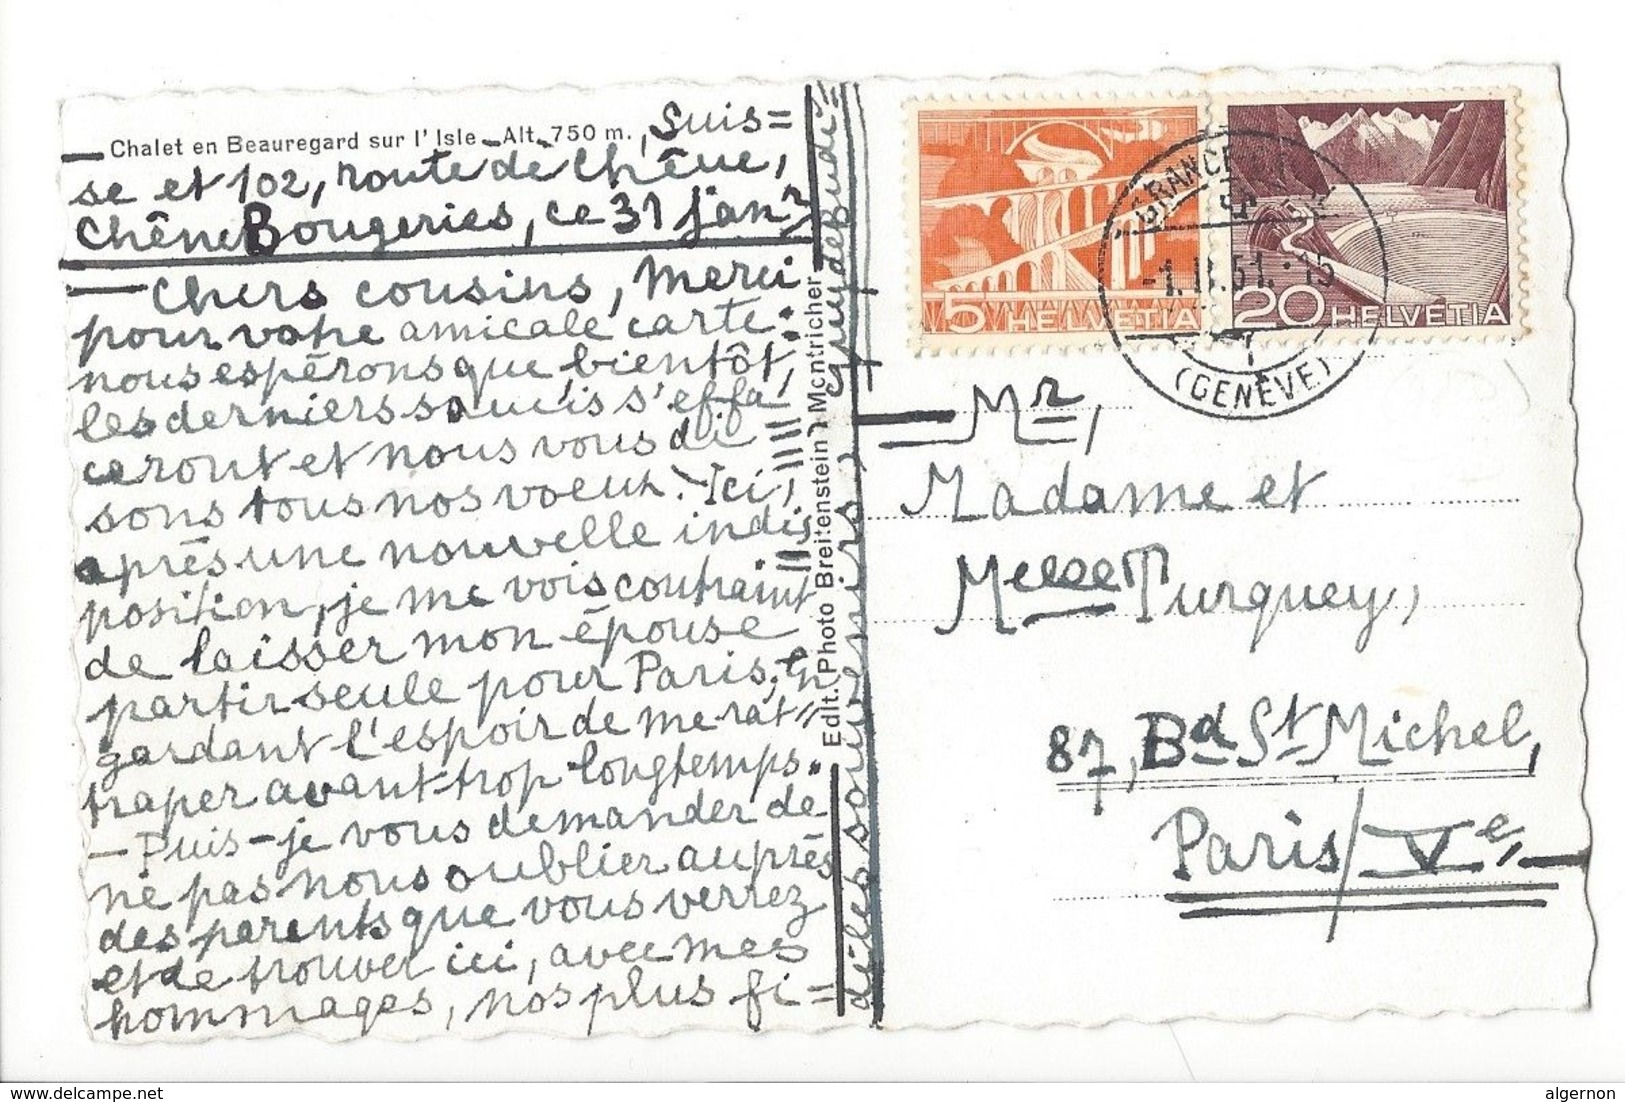 Chalet en Beauregard sur l'Isle - Alt. 750 m., Suis=
se et 102, route de Chêne,
Chêne Bougeries, ce 31 janr
— Chers cousins, Merci
pour votre amicale carte:
nous espérons que bientôt,
les derniers soucis s'effa=
ceront et nous vous di=
sons tous nos voeux. - Ici,
après une nouvelle indis=
position, je me vois contraint
de laisser mon épouse
partir seule pour Paris, en
gardant l'espoir de me rat=
traper avant trop longtemps.
— Puis-je vous demander de
ne pas nous oublier auprès
des parents que vous verrez
et de trouver ici, avec mes
hommages, nos plus fi=
dèles souvenirs,
Edit. Photo Breitenstein, Montricher
5 HELVETIA
20 HELVETIA
-1.II.51.-15
(GENÈVE)
Mr,
Madame et
Melle Turquey,
87, Bd St Michel,
Paris/Ve,
www.delcampe.net
algernon